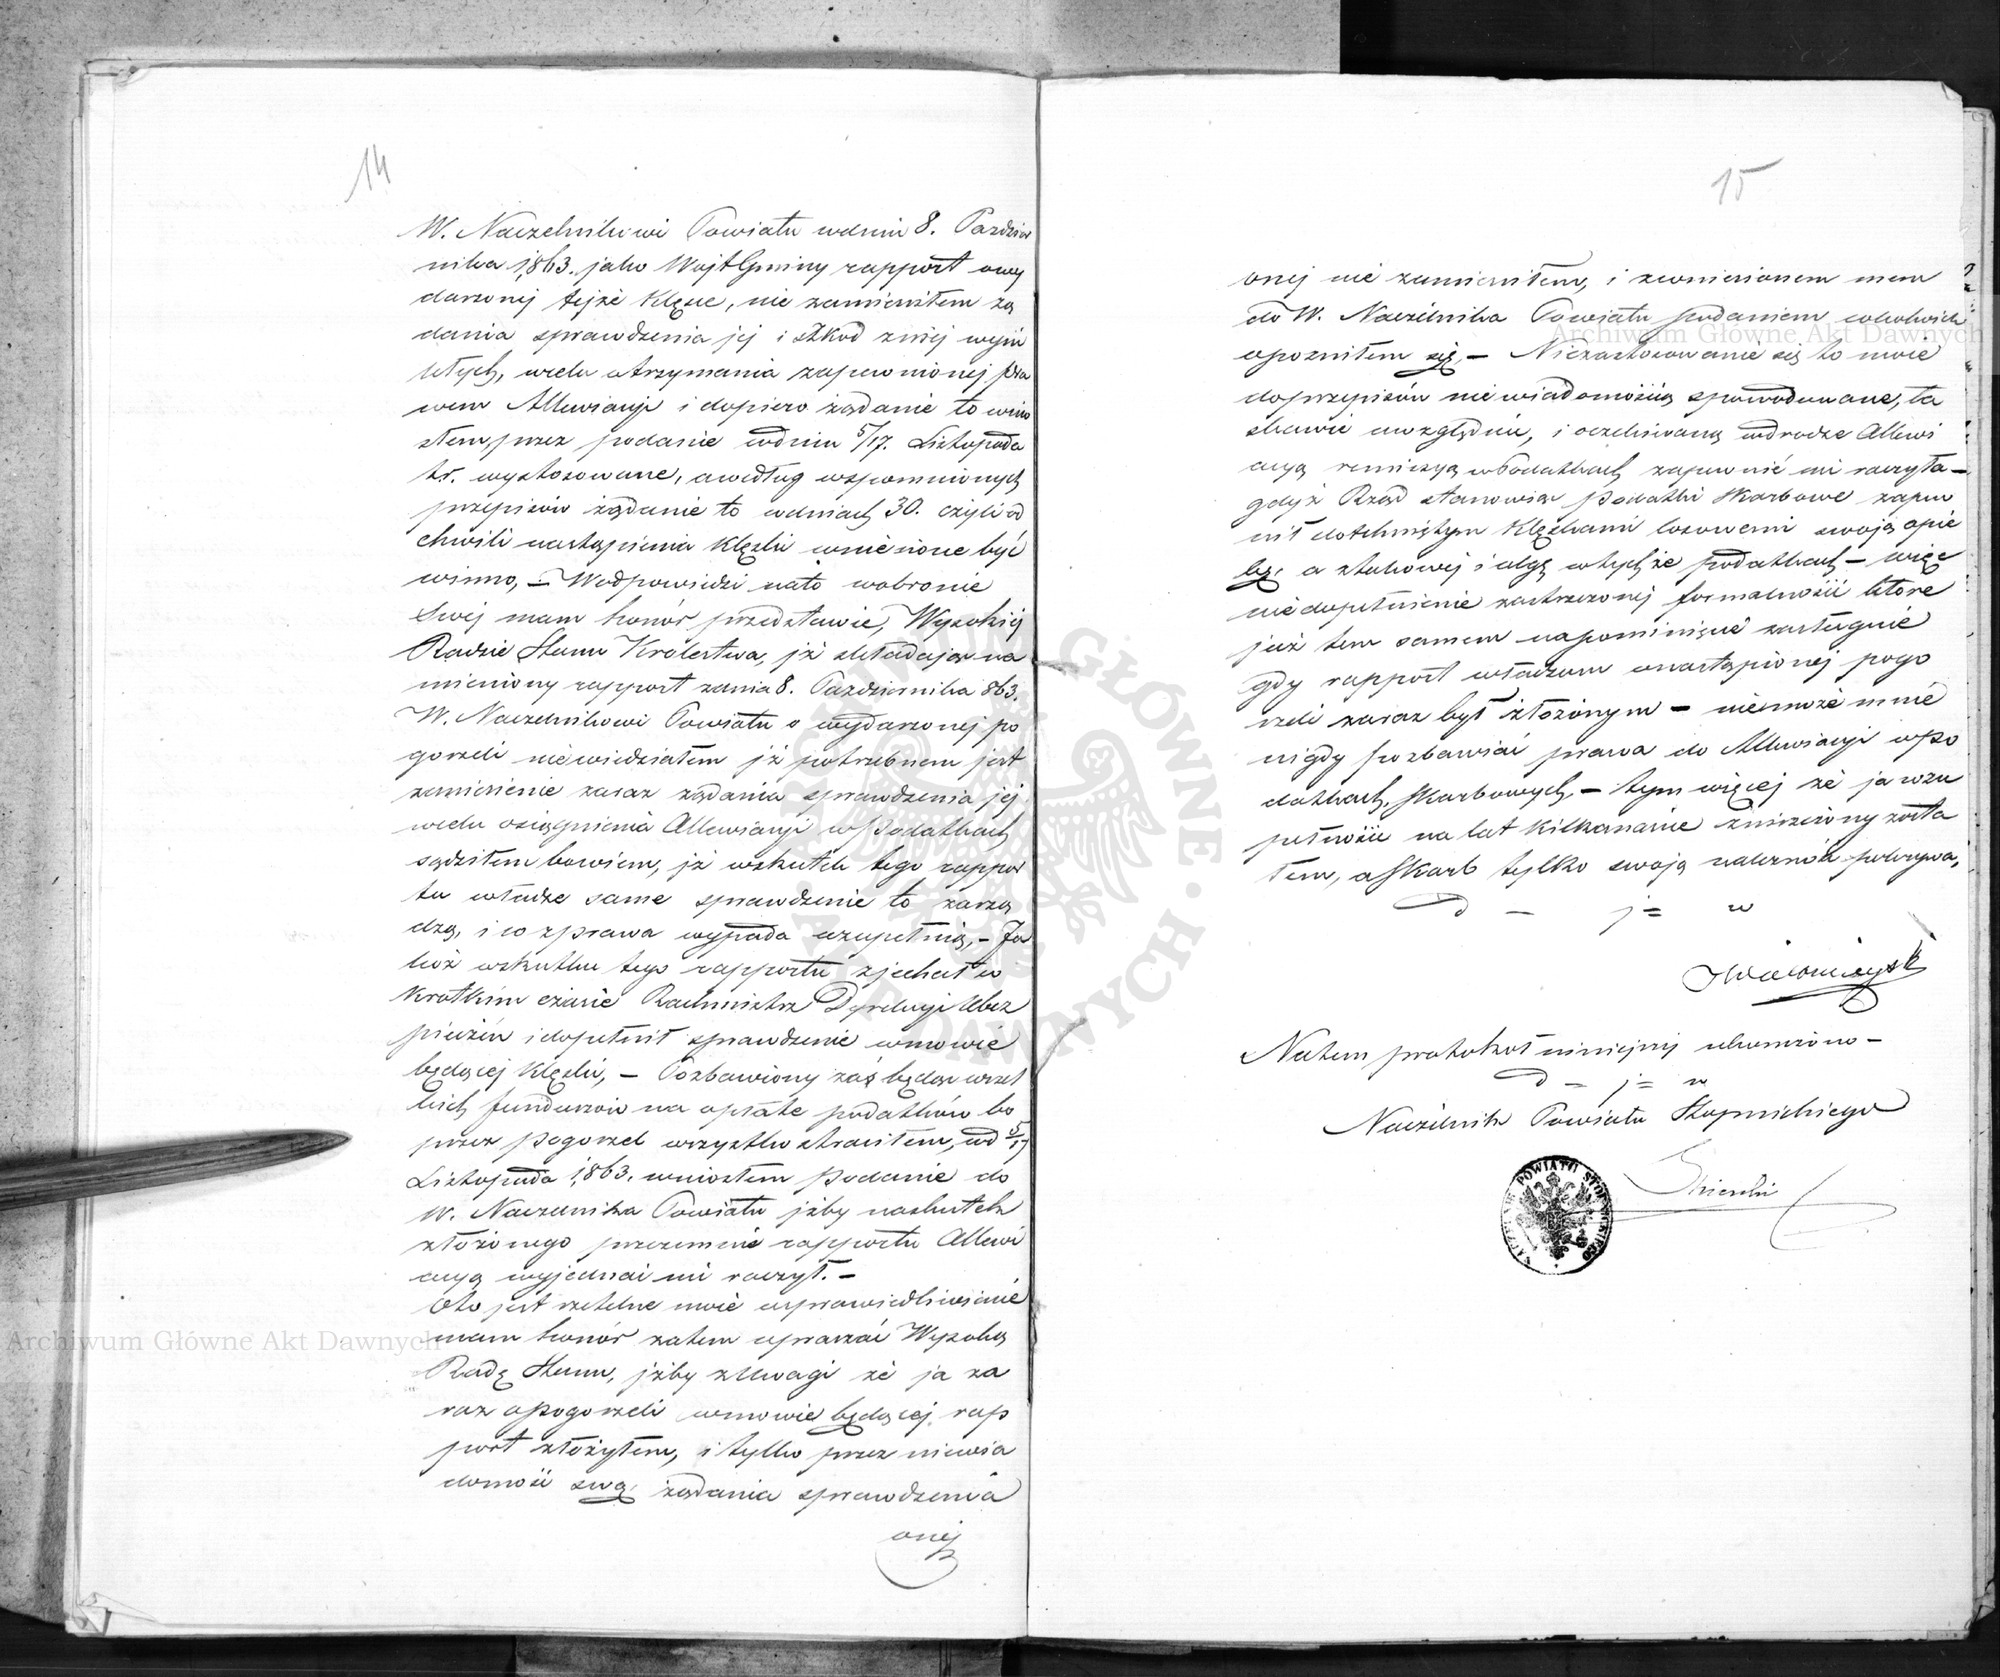 14
W. Naczelnikowi Powiatu wdniu 8. Paździer
nika 1,863. jako Wójt Gminy rapport owy
darzonej tejże Klęsce, nie zamieniłem żą
dania sprawdzenia jej i szkod zniej wyni
kłych, wcelu otrzymania zapewnionej pra
wem Allewiacyi i dopiero żądanie to wnio
słem, przez podanie wdniu 5/17. Listopada
t.r. wystosowane, awedług wspomnionych
przepisów żądanie to wdniach 30. czyli od
chwili nastąpienia Klęski wniesione być
winno, – Wodpowiedzi nato wobronie
Swej mam honór przedstawić, Wysokiej
Radzie Stanu Królestwa, iż składając na
mieniony rapport zdnia 8. Października 863.
W. Naczelnikowi Powiatu o wydarzonej po
gorzeli niewiedziałem iż potrzebnem jest
zamieścienie zaraz żądania sprawdzenia jej
wcelu osiągnienia Allewiacyi wPodatkach
sądziłem bowiem, iż wskutek tego rappor
tu władze same sprawdzenie to zarzą
dzą, i co zprawa wypada uzupełnią, – Ja
koż wskutku tego rapportu zjechał w
Krótkim czasie Rachmistrz Dyrekcyi Ubez
pieczeń i dopełnił sprawdzenie wmowie
będącej Klęski, – Pozbawiony zaś będąc wszel
kich funduszów na opłatę podatków bo
przez pogorzel wszystko straciłem, wd 5/17
Listopada 1,863. wniosłem podanie do
W. Naczelnika Powiatu iżby naskutek
złożonego przezemnie rapportu Allewi
acyą wyjednać mi raczył. –
Oto jest rzetelne moie usprawiedliwienie
mam honór zatem upraszać Wysoką
Radę Stanu, iżby zUwagi że ja za
raz oPogorzeli wmowie będącej rap
port złożyłem, i tylko przez niewia
domość swą, żądania sprawdzenia
onej
15
onej nie zamieniłem, i zwniesionem mem
do W. Naczelnika Powiatu podaniem cokolwiek
opoźniłem się, – Niezastosowanie się to moie
doprzepisów niewiadomością spowodowane, ła
skawie uwzględnić, i oczekiwaną wdrodze Allewi
acyą remissyą wPodatkach zapewnić mi raczyła –
gdyż Rząd stanowiąc podatki Skarbowe zapew
nił dotchniętym Klęskami losowemi swoją opie
kę, a ztakowej i ulgę wtychże podatkach – więc
niedopełnienie zastrzeżonej formalności które
już tem samem napomnienie zasługuie
gdy rapport władzom onastąpionej pogo
rzeli zaraz był złożonym – niemoże mnie
nigdy pozbawiać prawa do Allewiacyi wpo
datkach, Skarbowych, – tym więcej że ja wzu
pełności na lat Kilkanaście zniszczony zosta
łem, aSkarb tylko swoją należność pokrywa,
D – j = w
Natem protokoł niniejszy ukończono –
D – j = w
Naczelnik Powiatu Stopnickiego
NACZELNIK POWIATU STOPNICKIEGO
Archiwum Główne Akt Dawnych
Archiwum Główne Akt Dawnych
ARCHIWUM GŁÓWNE AKT DAWNYCH